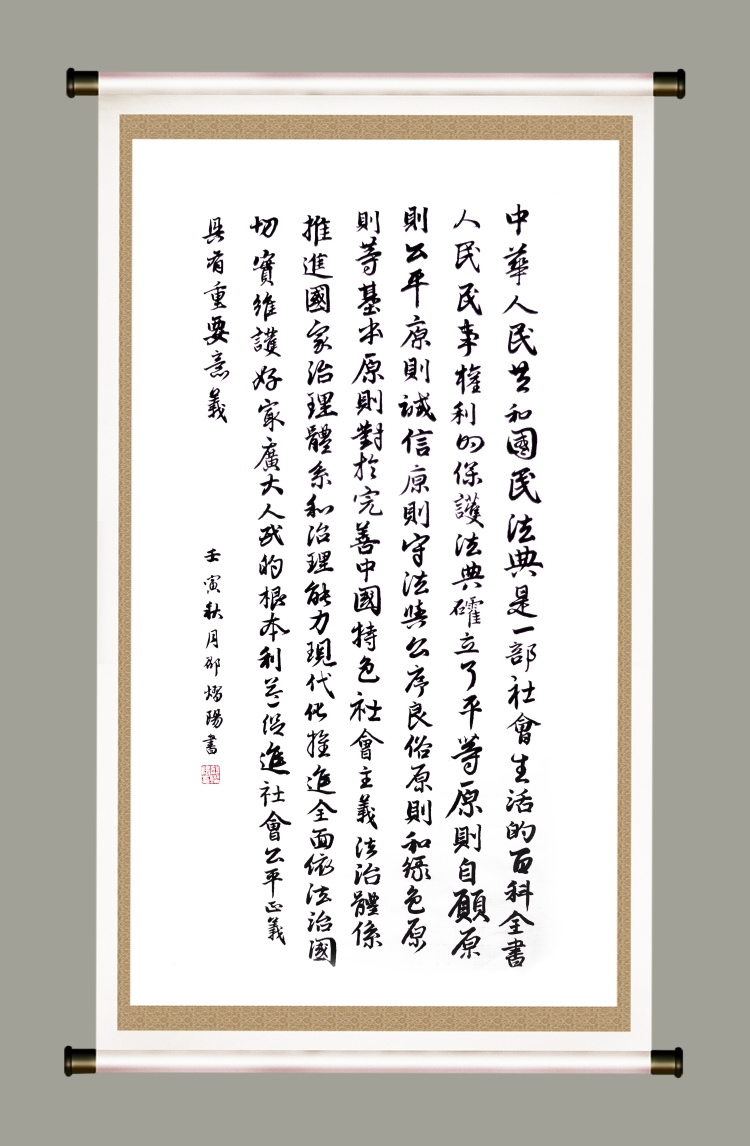 中華人民共和國民法典是一部社會生活的百科全書
人民民事權利的保護法典確立了平等原則自願原
則公平原則誠信原則守法與公序良俗原則和綠色原
則等基本原則對於完善中國特色社會主義法治體係
推進國家治理體系和治理能力現代化推進全面依法治國
切實維護好家廣大人民的根本利益促進社會公平正義
具有重要意義
壬寅秋月邵熠陽書